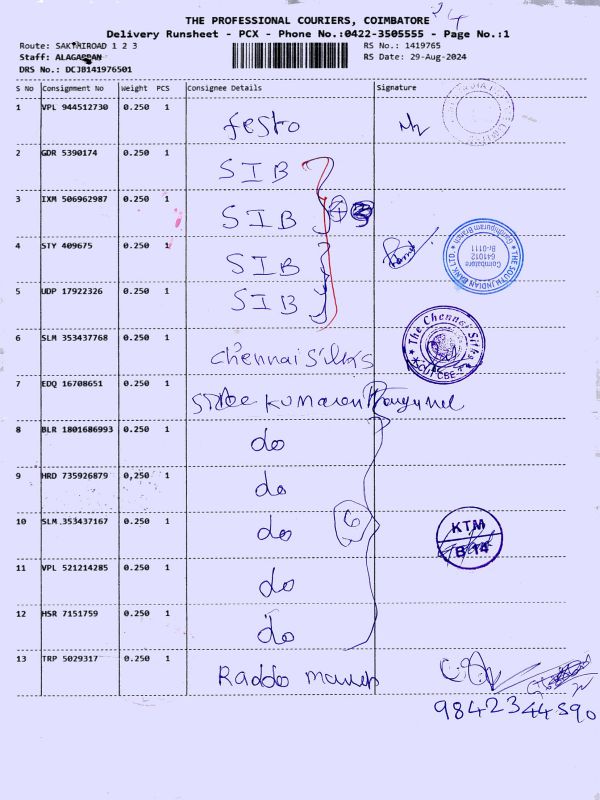 24
THE PROFESSIONAL COURIERS, COIMBATORE
Delivery Runsheet - PCX - Phone No.:0422-3505555 - Page No.:1
Route: SAKTHIROAD 1 2 3 RS No.: 1419765
Staff: ALAGAPPAN RS Date: 29-Aug-2024
DRS No.: DCJ8141976501
S No Consignment No Weight PCS Consignee Details Signature
1 VPL 944512730 0.250 1 festo
2 GDR 5390174 0.250 1 SIB
3 IXM 506962987 0.250 1 SIB
4 STY 409675 0.250 1 SIB
THE SOUTH INDIAN BANK LTD.
Coimbatore
641012
Br-0111
Gandhipuram Branch
5 UDP 17922326 0.250 1 SIB
6 SLM 353437768 0.250 1 chennai silks
The Chennai Silks
CBE
7 EDQ 16708651 0.250 1 kumaran
8 BLR 1801686993 0.250 1 do
9 HRD 735926879 0,250 1 do
10 SLM.353437167 0.250 1 do 6
KTM
B 14
11 VPL 521214285 0.250 1 do
12 HSR 7151759 0.250 1 do
13 TRP 5029317 0.250 1 Raddo
9842344590